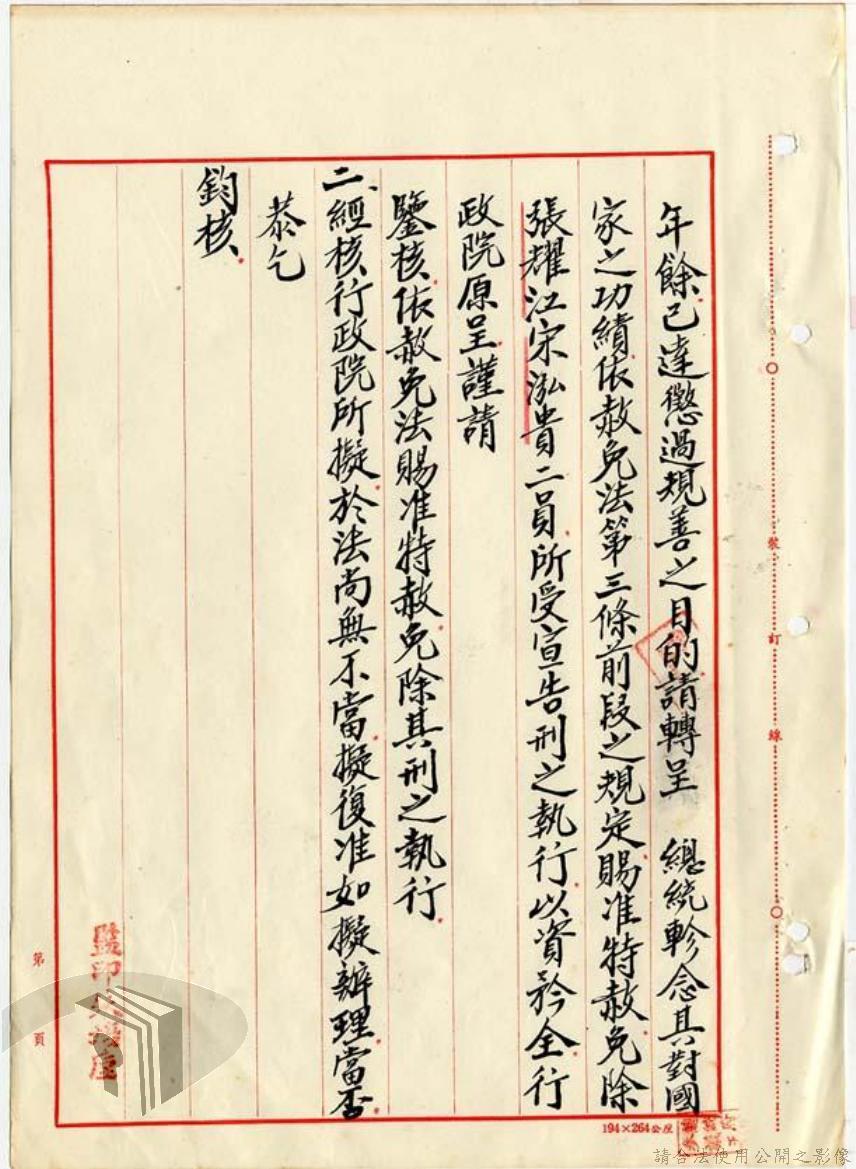 年餘已達懲過規善之目的請轉呈　總統軫念其對國
家之功績依赦免法第三條前段之規定賜准特赦免除
張耀江宋泓貴二員所受宣告刑之執行以資矜全行
政院原呈謹請
鑒核依赦免法賜准特赦免除其刑之執行
二、經核行政院所擬於法尚無不當擬復准如擬辦理當否
恭乞
鈞核
裝
訂
線
第　頁
監印
194×264公厘
請合法使用公開之影像